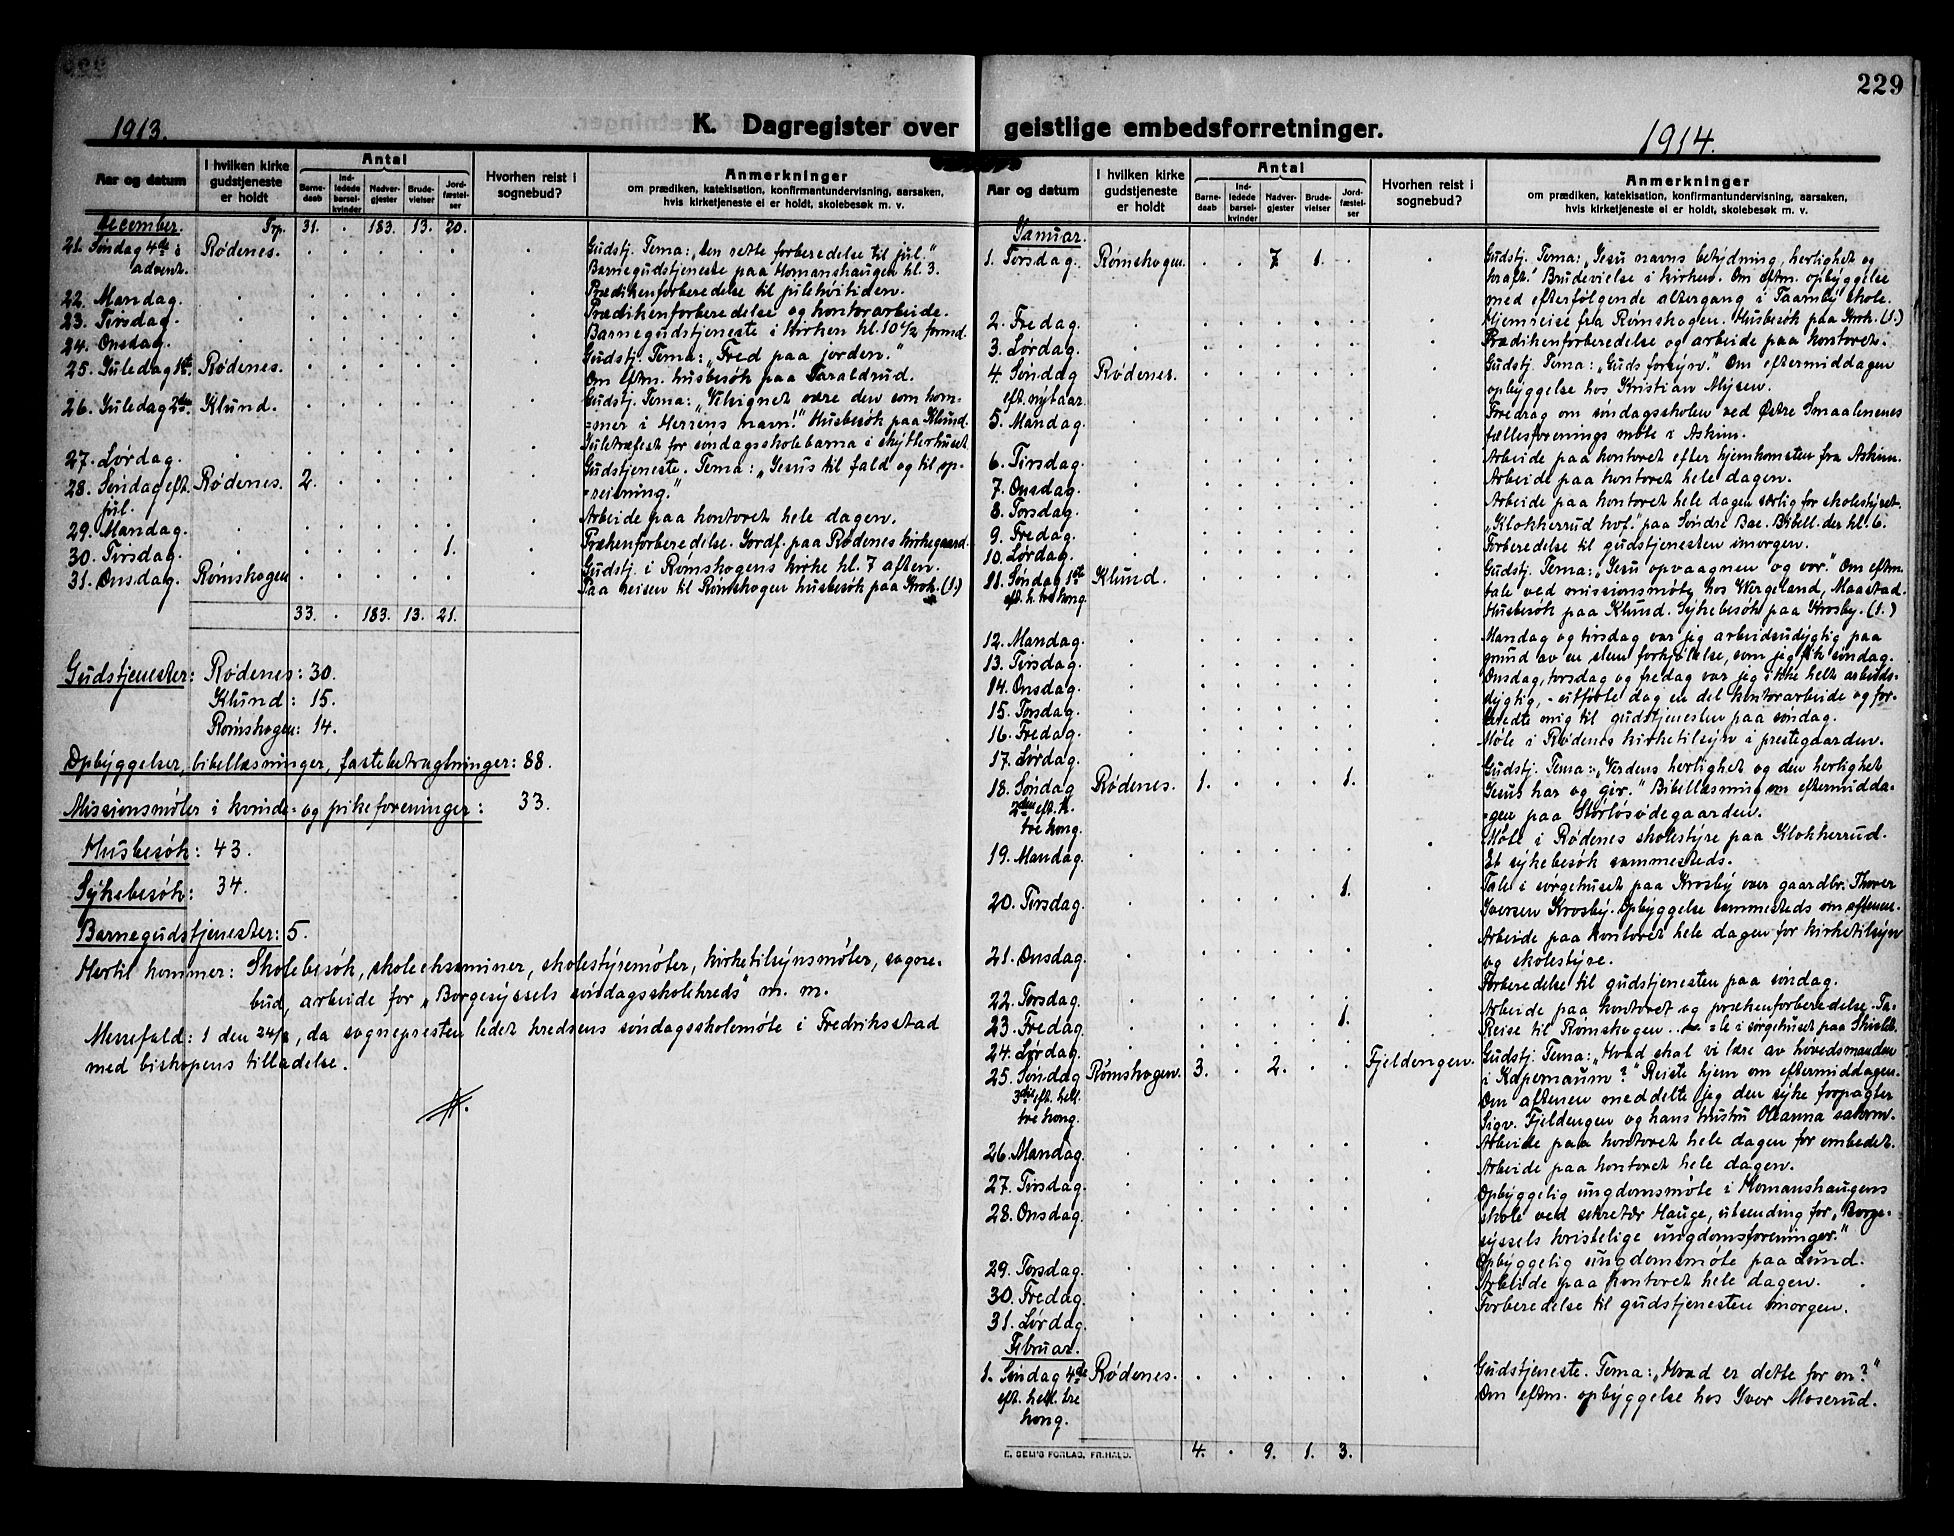 229
1913.
K. Dagregister over geistlige embedsforretninger.
1914.
Aar og datum
I hvilken kirke gudstjeneste er holdt
Antal
Barne-daab
Ind-ledede barsel-kvinder
Nadver-gjester
Brude-vielser
Jord-fæstel-ser
Hvorhen reist i sognebud?
Anmerkninger
om prædiken, katekisation, konfirmantundervisning, aarsaken,
hvis kirketjeneste ei er holdt, skolebesøk m. v.
December. Trp. 31. . 183. 13. 20.
21. Søndag 4de i Rødenes. Gudstj. Tema: „Den rette forberedelse til jul."
advent. Barnegudstjeneste paa Homanshaugen kl. 3.
22. Mandag. Prædikenforberedelse til julehøitiden.
23. Tirsdag. Prædikenforberedelse og kontorarbeide.
24. Onsdag. Barnegudstjeneste i kirken kl. 10 1/2 formd.
25. Juledag 1ste. Rødenes. Gudstj. Tema: „Fred paa jorden."
Om eftm. husbesøk paa Taraldrud.
26. Juledag 2den. Klund. Gudstj. Tema: „Velsignet være den som kom-
=mer i Herrens navn!" Husbesøk paa Klund.
27. Lørdag. Juletræfest for søndagsskolebarna i skytterhuset.
28. Søndag eft. Rødenes. 2. Gudstjeneste. Tema: „Jesus til fald og til op-
jul. =reisning."
29. Mandag. Arbeide paa kontoret hele dagen.
30. Tirsdag. 1. Prækenforberedelse. Jordf. paa Rødenes kirkegaard.
31. Onsdag. Rømskogen Gudstj. i Rømskogens kirke kl. 7 aften.
Paa reisen til Rømskogen husbesøk paa Krok. (1.)
33. . 183. 13. 21.
Gudstjenester: Rødenes: 30.
Klund: 15.
Rømskogen: 14.
Opbyggelser, bibellæsninger, fastebetragtninger: 88.
Missionsmøter i kvinde- og pikeforeninger: 33.
Husbesøk: 43.
Sykebesøk: 34.
Barnegudstjenester: 5.
Hertil kommer: Skolebesøk, skoleeksaminer, skolestyremøter, kirketilsynsmøter, sogne-
bud, arbeide for „Borgesyssels søndagsskolekreds" m. m.
Messefald: 1 den, da sognepresten ledet kredsens søndagsskolemøte i Fredriksstad
med biskopens tilladelse.
Aar og datum
I hvilken kirke gudstjeneste er holdt
Antal
Barne-daab
Ind-ledede barsel-kvinder
Nadver-gjester
Brude-vielser
Jord-fæstel-ser
Hvorhen reist i sognebud?
Anmerkninger
om prædiken, katekisation, konfirmantundervisning, aarsaken,
hvis kirketjeneste ei er holdt, skolebesøk m. v.
Januar.
1. Torsdag. Rømskogen. . . 7 1. . Gudstj. Tema: „Jesu navns betydning, herlighet og
kraft." Brudevielse i kirken. Om eftm. opbyggelse
med efterfølgende altergang i Taarnby skole.
2. Fredag. Hjemreise fra Rømskogen. Husbesøk paa Krok. (1.)
3. Lørdag. Prædikenforberedelse og arbeide paa kontoret.
4. Søndag Rødenes. Gudstj. Tema: „Guds forsyn". Om eftermiddagen
eft. nytaar. opbyggelse hos Kristian Mysen.
5. Mandag. Foredrag om søndagsskolen ved Østre Smaalenenes
fællesforenings møte i Askim.
6. Tirsdag. Arbeide paa kontoret efter hjemkomsten fra Askim.
7. Onsdag. Arbeide paa kontoret hele dagen.
8. Torsdag. Arbeide paa kontoret hele dagen særlig for skolestyret.
9. Fredag. „Klokkerrud kvf." paa Søndre Bøe. Bibell. der kl. 6.
10. Lørdag. Forberedelse til gudstjenesten imorgen.
11. Søndag 1ste Klund. Gudstj. Tema: „Jesu opvaagnen og vor." Om eftm.
eft. h. tre kong. tale ved missionsmøte hos Wergeland, Maastad.
Husbesøk paa Klund. Sykebesøk paa Krosby. (1.)
12. Mandag. Mandag og tirsdag var jeg arbeidsudygtig paa
13. Tirsdag. grund av en slem forkjølelse, som jeg fik søndag.
14. Onsdag. Onsdag, torsdag og fredag var jeg ikke helt arbeids-
15. Torsdag. dygtig, - utførte dog en del kontorarbeide og for-
16. Fredag. beredte mig til gudstjenesten paa søndag.
17. Lørdag. Møte i Rødenes kirketilsyn i prestegaarden.
18. Søndag Rødenes. 1. . . . 1. Gudstj. Tema: „Verdens herlighet og den herlighet
2den eft. h. Jesus har og gir." Bibellæsning om eftermidda-
tre kong. =gen paa Størløsødegaarden.
19. Mandag. Møte i Rødenes skolestyre paa Klokkerrud.
Et sykebesøk sammesteds.
20. Tirsdag. 1. Tale i sørgehuset paa Krosby over gaardbr. Thorer
Iversen Krosby. Opbyggelse sammesteds om aftenen.
21. Onsdag. Arbeide paa kontoret hele dagen for kirketilsyn
og skolestyre.
22. Torsdag. Forberedelse til gudstjenesten paa søndag.
23. Fredag. 1. Arbeide paa kontoret og prækenforberedelse. Ta-
24. Lørdag. Reise til Rømskogen. =le i sørgehuset paa
25. Søndag Rømskogen. 3. . 2. . . Fjeldengen. Gudstj. Tema: „Hvad skal vi lære av høvedsmanden
3die eft. hell. i Kapernaum?" Reiste hjem om eftermiddagen.
tre kong. Om aftenen meddelte jeg den syke forpagter
Sigv. Fjeldengen og hans hustru Oleanna sakrm.
26. Mandag. Arbeide paa kontoret hele dagen for embedet.
27. Tirsdag. Arbeide paa kontoret hele dagen.
28. Onsdag. Opbyggelig ungdomsmøte i Homanshaugens
skole ved sekretær Hauge, utsending for „Borge-
syssels kristelige ungdomsforeninger."
29. Torsdag. Opbyggelig ungdomsmøte paa Lund.
30. Fredag. Arbeide paa kontoret hele dagen.
31. Lørdag. Forberedelse til gudstjenesten imorgen.
Februar.
1. Søndag 4de Rødenes. Gudstjeneste. Tema: „Hvad er dette for en?"
eft. hell. tre Om eftm. opbyggelse hos Iver Moserud.
kong.
4. . 9. 1. 3.
E. SEM'S FORLAG, FR.HALD.